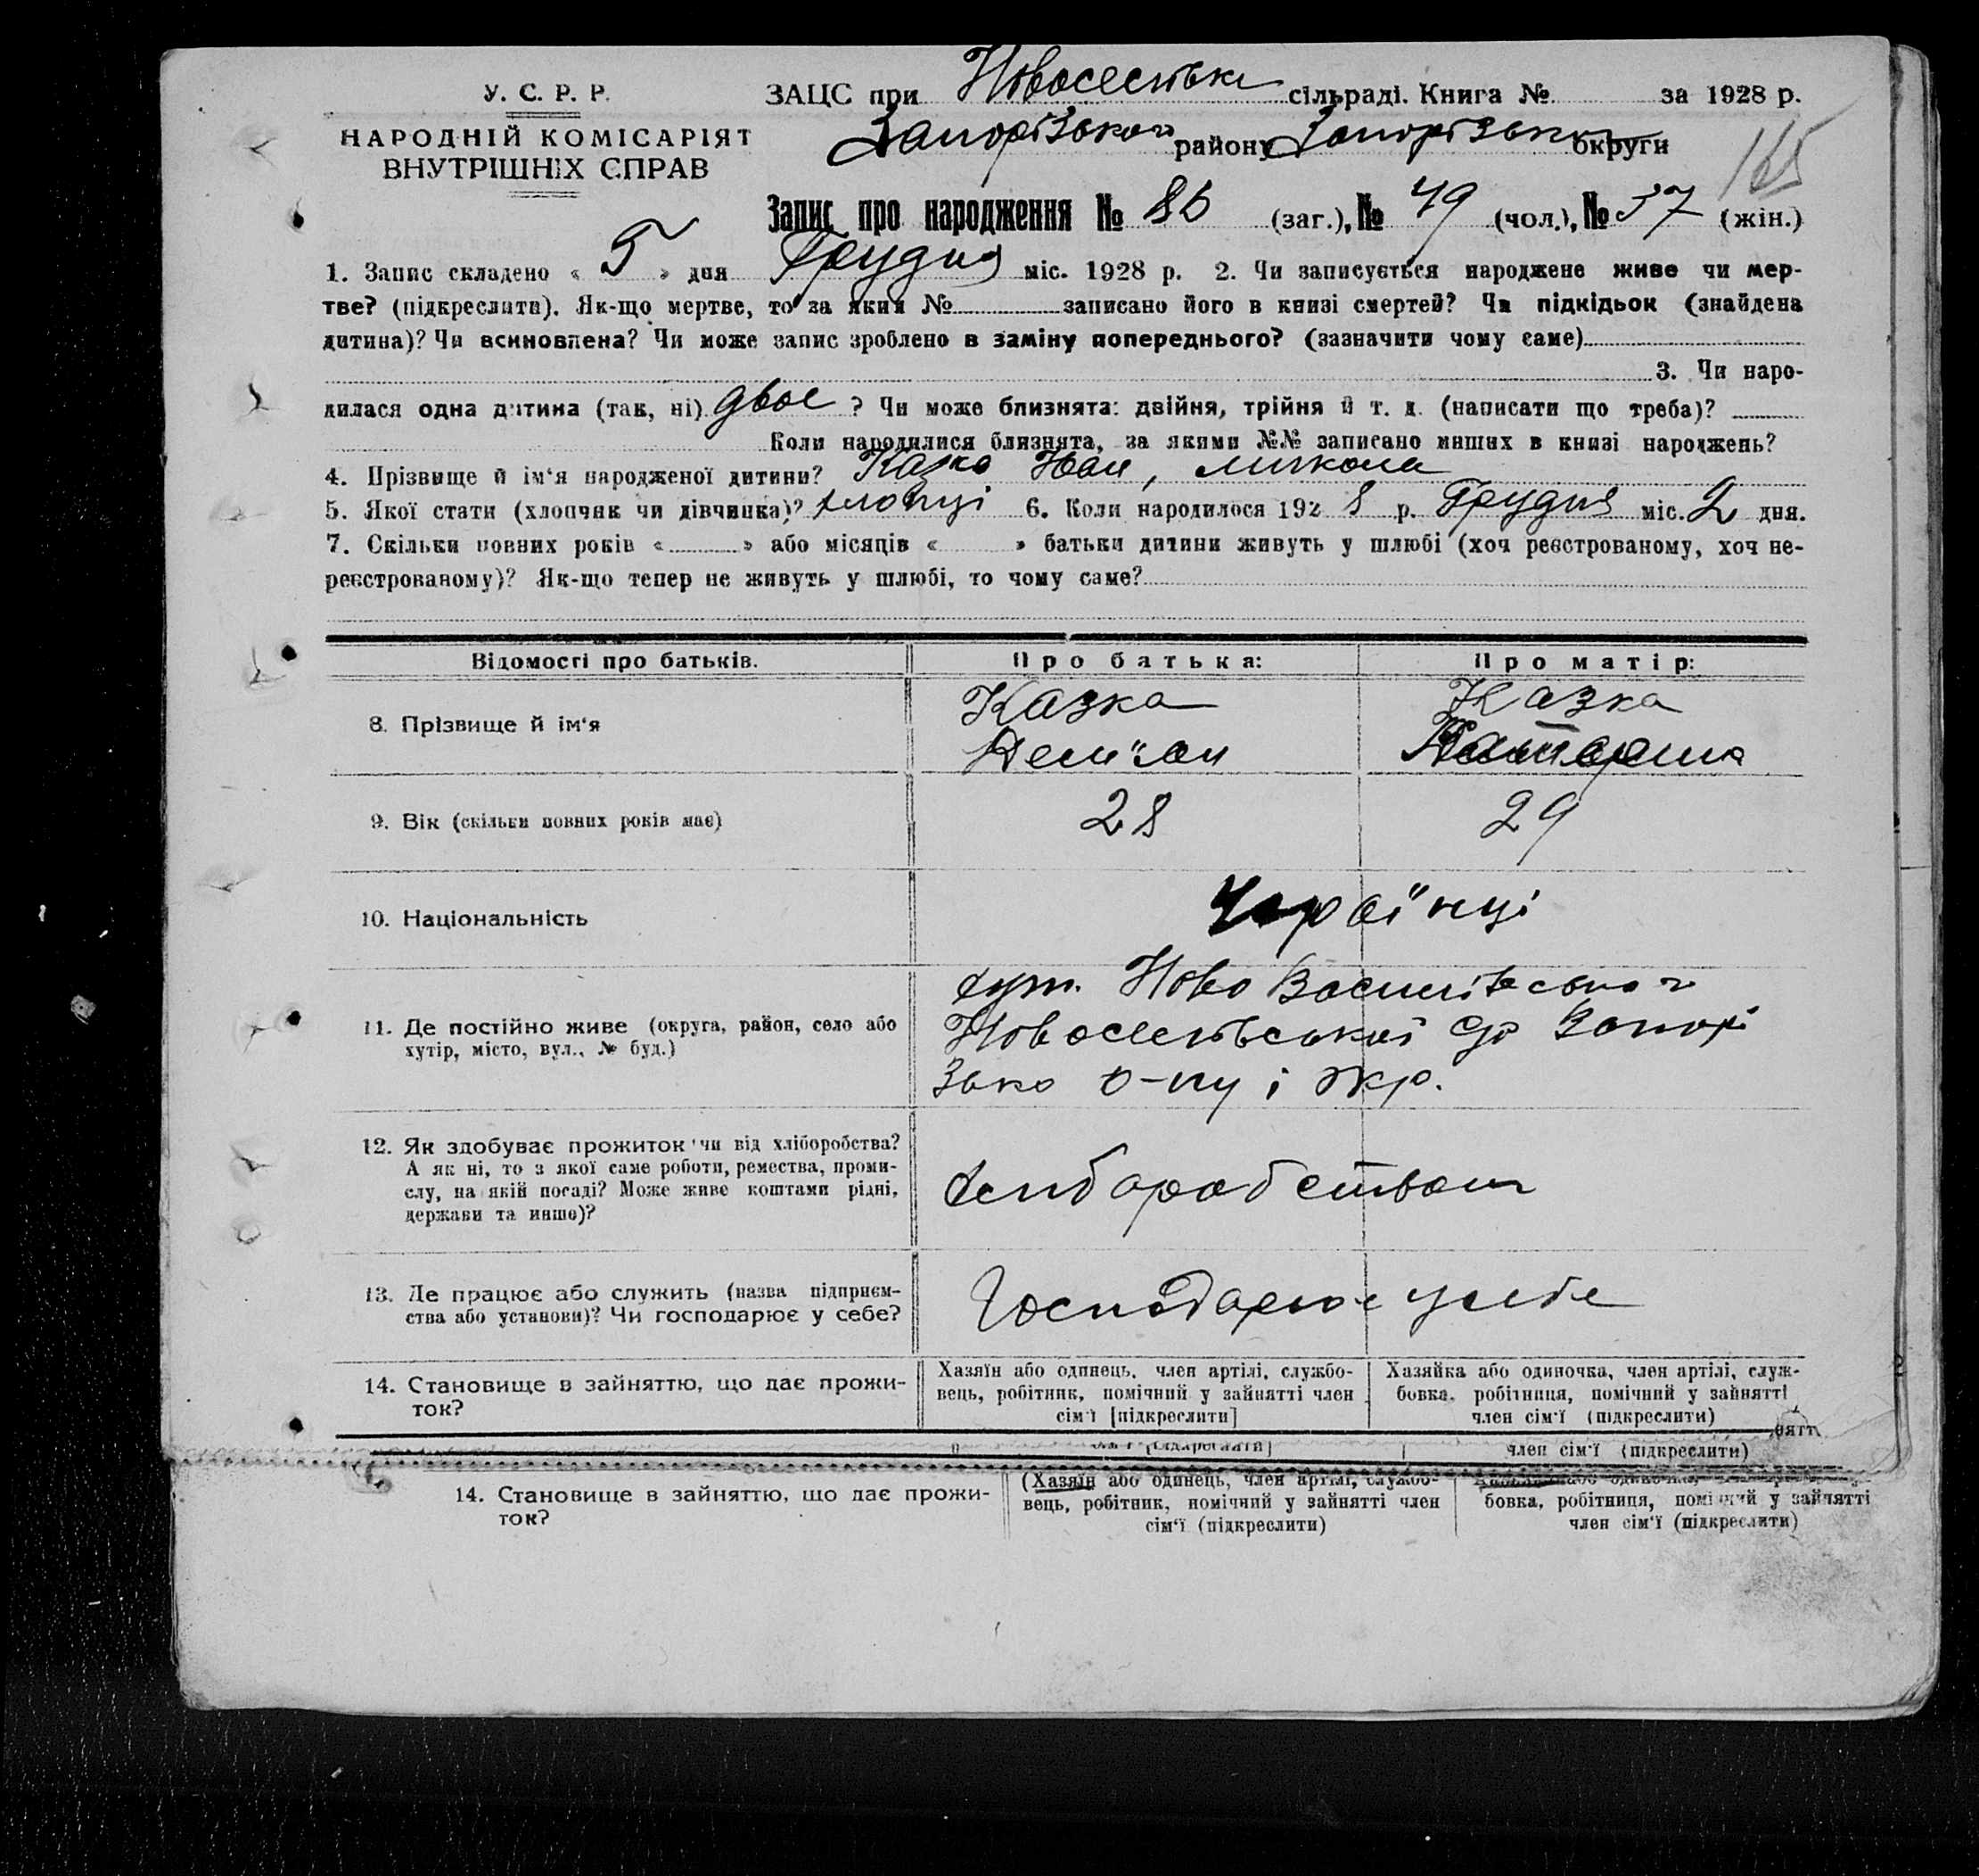 У. С. Р. Р.
НАРОДНІЙ КОМІСАРІЯТ
ВНУТРІШНІХ СПРАВ
ЗАЦС при Новоселівські сільраді. Книга № за 1928 р.
Запорізького району Запорізької округи
165
Запис про народження № 86 (заг.), № 49 (чол.), № 37 (жін.)
1. Запис складено « 5 » дня Грудня міс. 1928 р. 2. Чи записується народжене живе чи мер-
тве? (підкреслити). Як-що мертве, то за яким № записано його в книзі смертей? Чи підкідьок (знайдена
дитина)? Чи всиновлена? Чи може запис зроблено в заміну попереднього? (зазначити чому саме)
3. Чи наро-
дилася одна дитина (так, ні) двоє ? Чи може близнята: двійня, трійня й т. д. (написати що треба)?
Коли народилися близнята, за якими №№ записано инших в книзі народжень?
4. Прізвище й ім'я народженої дитини? Казка Іван, микола
5. Якої стати (хлопчик чи дівчинка)? хлопці 6. Коли народилося 1928 р. Грудня міс. 2 дня.
7. Скільки повних років « » або місяців « » батьки дитини живуть у шлюбі (хоч реєстрованому, хоч не-
реєстрованому)? Як-що тепер не живуть у шлюбі, то чому саме?
Відомості про батьків. Про батька: Про матір:
8. Прізвище й ім'я Казка Казка
Дем'ян Катерина
9. Вік (скільки повних років має) 28 29
10. Національність Українці
11. Де постійно живе (округа, район, село або
хутір, місто, вул., № буд.)
хут. Ново
Новоселівської с/р Запорі
зько р-ну і окр.
12. Як здобуває прожиток чи від хліборобства?
А як ні, то з якої саме роботи, ремества, проми-
слу, на якій посаді? Може живе коштами рідні,
держави та инше)?
хліборобством
13. Де працює або служить (назва підприєм-
ства або установи)? Чи господарює у себе?
Господарює у себе
14. Становище в зайняттю, що дає прожи-
ток?
Хазяїн або одинець, член артілі, службо-
вець, робітник, помічний у зайнятті член
сім'ї [підкреслити]
Хазяйка або одиночка, член артілі, служ-
бовка, робітниця, помічний у зайнятті
член сім'ї (підкреслити)
член сім'ї (підкреслити)
14. Становище в зайняттю, що дає прожи-
ток?
(Хазяїн або одинець, член артілі, службо-
вець, робітник, помічний у зайнятті член
сім'ї (підкреслити)
бовка, робітниця, помічний у зайнятті
член сім'ї (підкреслити)